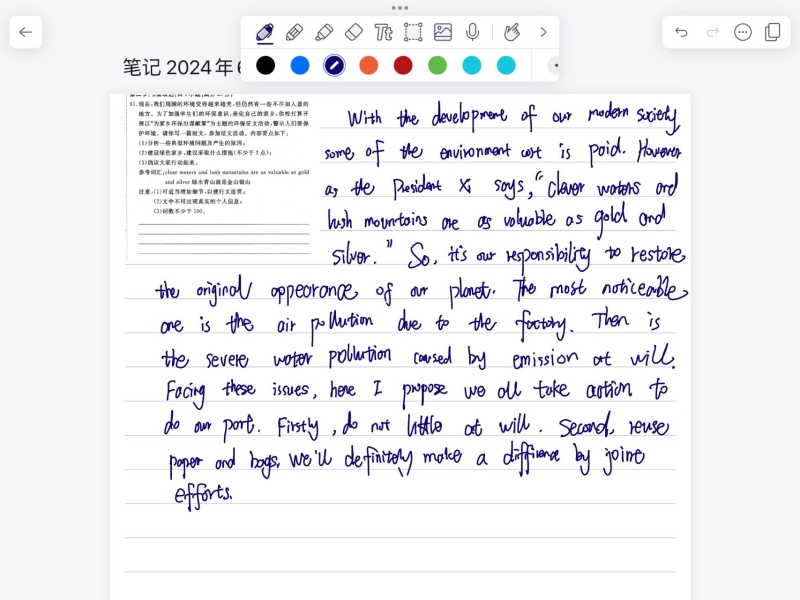 笔记 2024年6
51. 现在,我们周围的环境变得越来越美,但仍然有一些不尽如人意的
地方。为了加强学生们的环保意识,美化自己的家乡,你校打算开
展以“为家乡环保出谋献策”为主题的环保征文活动,警示人们要保
护环境。请你写一篇短文,参加征文活动。内容要点如下:
(1)分析一些典型环境问题及产生的原因;
(2)建设绿色家乡,建议采取什么措施(不少于2点);
(3)倡议大家行动起来。
参考词汇:clear waters and lush mountains are as valuable as gold
and silver 绿水青山就是金山银山
注意:(1)可适当增加细节,以使行文连贯;
(2)文中不可出现真实的个人信息;
(3)词数不少于100。
With the development of our modern society
some of the environment cost is paid. However
as the President Xi says, "clever waters and
lush mountains are as valuable as gold and
silver." So, it's our responsibility to restore
the original appearance of our planet. The most noticeable
one is the air pollution due to the factory. Then is
the severe water pollution caused by emission at will.
Facing these issues, here I propose we all take action to
do our part. Firstly, do not little at will. Second, reuse
paper and bags. We'll definitely make a diffirence by joine
efforts.